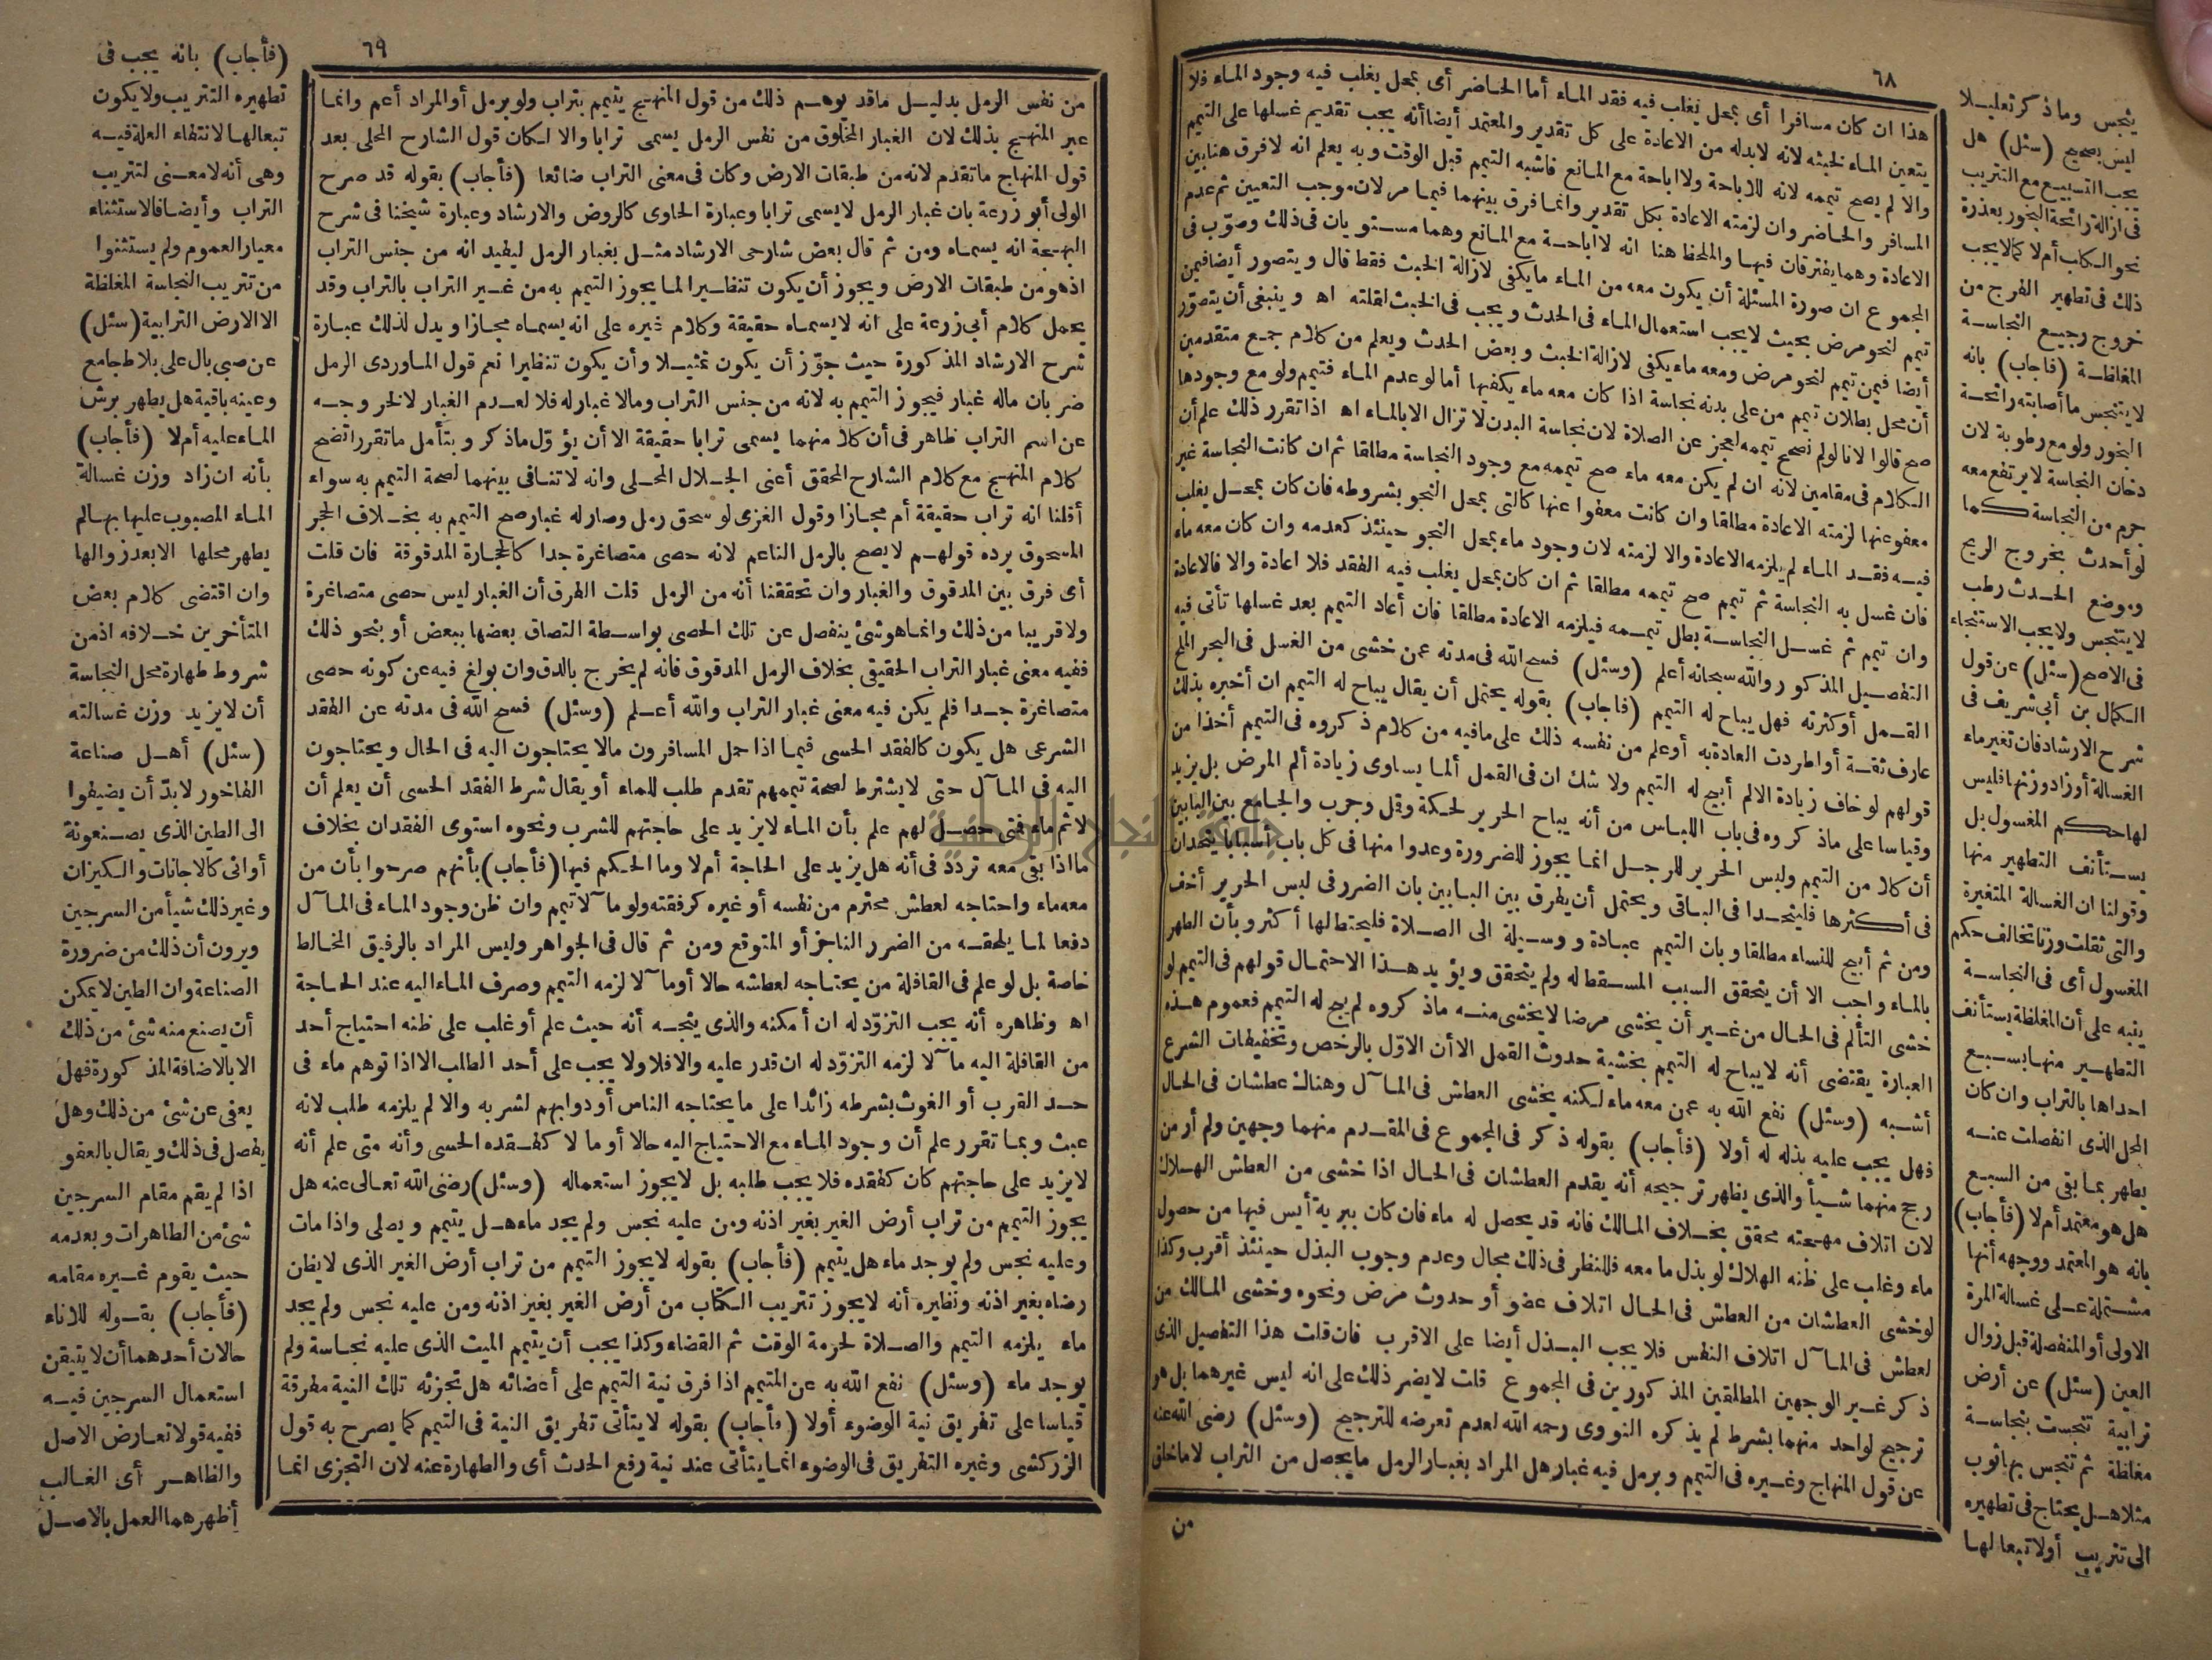 ٦٨
هذا ان كان مسافرا أى بمحل يغلب فيه فقد الماء أما الحاضر أى بمحل يغلب فيه وجود الماء فلا
يتعين الماء لخبثه لانه لابدله من الاعادة على كل تقدير والمعتمد أيضا أنه يجب تقديم غسلها على التيمم
والا لم يصح تيممه لانه للاباحة ولا اباحة مع المانع فاشبه التيمم قبل الوقت وبه يعلم انه لافرق هنا بين
المسافر والحاضر وان لزمته الاعادة بكل تقدير وانما فرق بينهما فيما مر لان موجب التعيين ثم عدم
الاعادة وهما يفترقان فيها والملحظ هنا انه لا اباحة مع المانع وهما مستويان فى ذلك وصوّب فى
المجموع ان صورة المسئلة أن يكون معه من الماء ما يكفى لازالة الخبث فقط قال ويتصور أيضا فيمن
تيمم لنحو مرض بحيث لايجب استعمال الماء فى الحدث ويجب فى الخبث لقلته اه وينبغى أن يتصوّر
أيضا فيمن تيمم لنحو مرض ومعه ماء يكفى لازالة الخبث وبعض الحدث ويعلم من كلام جمع متقدمين
أن محل بطلان تيمم من على بدنه نجاسة اذا كان معه ماء يكفيها أما لو عدم الماء فتيمم ولو مع وجودها
صح قالوا لانا لو لم نصحح تيممه لعجز عن الصلاة لان نجاسة البدن لا تزال الا بالماء اه اذا تقرر ذلك علم أن
الكلام فى مقامين لانه ان لم يكن معه ماء صح تيممه مع وجود النجاسة مطلقا ثم ان كانت النجاسة غير
معفو عنها لزمته الاعادة مطلقا وان كانت معفوا عنها كالتى بمحل النجو بشروطه فان كان بمحل يغلب
فيه فقد الماء لم يلزمه الاعادة والا لزمته لان وجود ماء بمحل النجو حينئذ كعدمه وان كان معه ماء
فان غسل به النجاسة ثم تيمم صح تيممه مطلقا ثم ان كان بمحل يغلب فيه الفقد فلا اعادة والا فالاعادة
وان تيمم ثم غسل النجاسة بطل تيممه فيلزمه الاعادة مطلقا فان أعاد التيمم بعد غسلها تأتى فيه
التفصيل المذكور والله سبحانه أعلم (وسئل) فسح الله فى مدته عمن خشى من الغسل فى البحر الملح
القمل أو كثرته فهل يباح له التيمم (فاجاب) بقوله يحتمل أن يقال يباح له التيمم ان أخبره بذلك
عارف ثقة أو اطردت العادة به أو علم من نفسه ذلك على مافيه من كلام ذكروه فى التيمم أخذا من
قولهم لو خاف زيادة الالم أبيح له التيمم ولا شك ان فى القمل ألما يساوى زيادة ألم المرض بل يزيد
وقياسا على ماذكروه فى باب اللباس من أنه يباح الحرير لحكة وقمل وجرب والجامع بين البابين
أن كلا من التيمم ولبس الحرير للرجل انما يجوز للضرورة وعدوا منها فى كل باب أسبابا يتحدان
فى أكثرها فليتحدا فى الباقى ويحتمل أن يفرق بين البابين بان الضرر فى لبس الحرير أخف
ومن ثم أبيح للنساء مطلقا وبان التيمم عبادة ووسيلة الى الصلاة فليحتط لها أكثر وبأن الطهر
بالماء واجب الا أن يتحقق السبب المسقط له ولم يتحقق ويؤيد هذا الاحتمال قولهم فى التيمم لو
خشى التألم فى الحال من غير أن يخشى مرضا لا يخشى منه ماذكروه لم يبح له التيمم فعموم هذه
العبارة يقتضى أنه لايباح له التيمم بخشية حدوث القمل الا أن الاوّل بالرخص وتخفيفات الشرع
أشبه (وسئل) نفع الله به عمن معه ماء لكنه يخشى العطش فى المآل وهناك عطشان فى الحال
فهل يجب عليه بذله له أولا (فأجاب) بقوله ذكر فى المجموع فى المقدم منهما وجهين ولم أر من
رجح منهما شيأ والذى يظهر ترجيحه أنه يقدم العطشان فى الحال اذا خشى من العطش الهلاك
لان اتلاف مهجته محقق بخلاف المالك فانه قد يحصل له ماء فان كان ببرية أيس فيها من حصول
ماء وغلب على ظنه الهلاك لو بذل ما معه فللنظر فى ذلك مجال وعدم وجوب البذل حينئذ أقرب وكذا
لو خشى العطشان من العطش فى الحال اتلاف عضو أو حدوث مرض ونحوه وخشى المالك من
لعطش فى المآل اتلاف النفس فلا يجب البذل أيضا على الاقرب فان قلت هذا التفصيل الذى
ذكر غير الوجهين المطلقين المذكورين فى المجموع قلت لا يضر ذلك على انه ليس غيرهما بل هو
ترجيح لواحد منهما بشرط لم يذكره النووى رحمه الله لعدم تعرضه للترجيح (وسئل) رضى الله عنه
عن قول المنهاج وغيره فى التيمم وبرمل فيه غبار هل المراد بغبار الرمل ما يحصل من التراب لا ما خلق
من
ينجس وما ذكر تعليلا
ليس بصحيح (سئل) هل
يجب التسبيع مع التتريب
فى ازالة رائحة البخور بعذرة
نحو الكلب أم لا كما لا يجب
ذلك فى تطهير الفرج من
خروج رجيع النجاسة
المغلظة (فاجاب) بانه
لا يتنجس ما أصابته رائحة
البخور ولو مع رطوبة لان
دخان النجاسة لا يرتفع معه
جرم من النجاسة كما
لو أحدث بخروج الريح
وموضع الحدث رطب
لا يتنجس ولا يجب الاستنجاء
فى الاصح (سئل) عن قول
الكمال بن أبى شريف فى
شرح الارشاد فان تغير ماء
الغسالة أو زاد وزنها فليس
لها حكم المغسول بل
يستأنف التطهير منها
وقولنا ان الغسالة المتغيرة
والتى ثقلت وزنا تخالف حكم
المغسول أى فى النجاسة
ينبه على أن المغلظة يستأنف
التطهير منها بسبع
احداها بالتراب وان كان
المحل الذى انفصلت عنه
يطهر بما بقى من السبع
هل هو معتمد أم لا (فأجاب)
بانه هو المعتمد ووجهه أنها
مشتملة على غسالة المرة
الاولى أو المنفصلة قبل زوال
العين (سئل) عن أرض
ترابية تنجست بنجاسة
مغلظة ثم تنجس بها ثوب
مثلا هل يحتاج فى تطهيره
الى تتريب أولا تبعا لها
٦٩
من نفس الرمل بدليل ما قد يوهم ذلك من قول المنهج يتيمم بتراب ولو برمل أو المراد أعم وانما
عبر المنهج بذلك لان الغبار المخلوق من نفس الرمل يسمى ترابا والا لكان قول الشارح المحلى بعد
قول المنهاج ما تقدم لانه من طبقات الارض وكان فى معنى التراب ضائعا (فأجاب) بقوله قد صرح
الولى أبو زرعة بان غبار الرمل لا يسمى ترابا وعبارة الحاوى كالروض والارشاد وعبارة شيخنا فى شرح
البهجة انه يسماه ومن ثم قال بعض شارحى الارشاد مثل بغبار الرمل ليفيد انه من جنس التراب
اذ هو من طبقات الارض ويجوز أن يكون تنظيرا لما يجوز التيمم به من غير التراب بالتراب وقد
يحمل كلام أبى زرعة على انه لا يسماه حقيقة وكلام غيره على انه يسماه مجازا ويدل لذلك عبارة
شرح الارشاد المذكورة حيث جوّز أن يكون تمثيلا وأن يكون تنظيرا نعم قول الماوردى الرمل
ضربان ماله غبار فيجوز التيمم به لانه من جنس التراب ومالا غبار له فلا لعدم الغبار لا لخروجه
عن اسم التراب ظاهر فى أن كلا منهما يسمى ترابا حقيقة الا أن يؤوّل ماذكر وبتأمل ما تقرر اتضح
كلام المنهج مع كلام الشارح المحقق أعنى الجلال المحلى وانه لا تنافى بينهما لصحة التيمم به سواء
أقلنا انه تراب حقيقة أم مجازا وقول الغزى لو سحق رمل وصار له غبار صح التيمم به بخلاف الحجر
المسحوق يرده قولهم لا يصح بالرمل الناعم لانه حصى متصاغرة جدا كالحجارة المدقوقة فان قلت
أى فرق بين المدقوق والغبار وان تحققنا أنه من الرمل قلت الفرق أن الغبار ليس حصى متصاغرة
ولا قريبا من ذلك وانما هو شئ ينفصل عن تلك الحصى بواسطة التصاق بعضها ببعض أو بنحو ذلك
ففيه معنى غبار التراب الحقيقى بخلاف الرمل المدقوق فانه لم يخرج بالدق وان بولغ فيه عن كونه حصى
متصاغرة جدا فلم يكن فيه معنى غبار التراب والله أعلم (وسئل) فسح الله فى مدته عن الفقد
الشرعى هل يكون كالفقد الحسى فيما اذا حمل المسافرون مالا يحتاجون اليه فى الحال ويحتاجون
اليه فى المآل حتى لا يشترط لصحة تيممهم تقدم طلب للماء أو يقال شرط الفقد الحسى أن يعلم أن
لا ثم ماء فمتى حصل لهم علم بأن الماء لا يزيد على حاجتهم للشرب ونحوه استوى الفقدان بخلاف
ما اذا بقى معه تردد فى أنه هل يزيد على الحاجة أم لا وما الحكم فيها (فأجاب) بأنهم صرحوا بأن من
معه ماء واحتاجه لعطش محترم من نفسه أو غيره كرفقته ولو مآلا تيمم وان ظن وجود الماء فى المآل
دفعا لما يلحقه من الضرر الناجز أو المتوقع ومن ثم قال فى الجواهر وليس المراد بالرفيق المخالط
خاصة بل لو علم فى القافلة من يحتاجه لعطشه حالا أو مآلا لزمه التيمم وصرف الماء اليه عند الحاجة
اه وظاهره أنه يجب التزوّد له ان أمكنه والذى يتجه أنه حيث علم أو غلب على ظنه احتياج أحد
من القافلة اليه مآلا لزمه التزوّد له ان قدر عليه والا فلا ولا يجب على أحد الطلب الا اذا توهم ماء فى
حد القرب أو الغوث بشرطه زائدا على ما يحتاجه الناس أو دوابهم لشربه والا لم يلزمه طلب لانه
عبث وبما تقرر علم أن وجود الماء مع الاحتياج اليه حالا أو مآلا كفقده الحسى وأنه متى علم أنه
لا يزيد على حاجتهم كان كفقده فلا يجب طلبه بل لا يجوز استعماله (وسئل) رضى الله تعالى عنه هل
يجوز التيمم من تراب أرض الغير بغير اذنه ومن عليه نجس ولم يجد ماء هل يتيمم ويصلى واذا مات
وعليه نجس ولم يوجد ماء هل يتيمم (فأجاب) بقوله لا يجوز التيمم من تراب أرض الغير الذى لا يظن
رضاه بغير اذنه ونظيره أنه لا يجوز تتريب الكتاب من أرض الغير بغير اذنه ومن عليه نجس ولم يجد
ماء يلزمه التيمم والصلاة لحرمة الوقت ثم القضاء وكذا يجب أن يتيمم الميت الذى عليه نجاسة ولم
يوجد ماء (وسئل) نفع الله به عن المتيمم اذا فرق نية التيمم على أعضائه هل تجزئه تلك النية مفرقة
قياسا على تفريق نية الوضوء أولا (فأجاب) بقوله لا يتأتى تفريق النية فى التيمم كما يصرح به قول
الزركشى وغيره التفريق فى الوضوء انما يتأتى عند نية رفع الحدث أى والطهارة عنه لان التجزى انما
(فأجاب) بانه يجب فى
تطهيره التتريب ولا يكون
تبعا لها لانتفاء العلة فيه
وهى أنه لا معنى لتتريب
التراب وأيضا فالاستثناء
معيار العموم ولم يستثنوا
من تتريب النجاسة المغلظة
الا الارض الترابية (سئل)
عن صبى بال على بلاط جامع
وعينه باقية هل يطهر برش
الماء عليه أم لا (فأجاب)
بأنه ان زاد وزن غسالة
الماء المصبوب عليها بها لم
يطهر محلها الا بعد زوالها
وان اقتضى كلام بعض
المتأخرين خلافه اذ من
شروط طهارة محل النجاسة
أن لا يزيد وزن غسالته
(سئل) أهل صناعة
الفاخور لابدّ أن يضيفوا
الى الطين الذى يصنعونة
أوانى كالاجانات والكيزان
وغير ذلك شيأ من السرجين
ويرون أن ذلك من ضرورة
الصناعة وان الطين لا يمكن
أن يصنع منه شئ من ذلك
الا بالاضافة المذكورة فهل
يعفى عن شئ من ذلك وهل
يفصل فى ذلك ويقال بالعفو
اذا لم يقم مقام السرجين
شئ من الطاهرات وبعدمه
حيث يقوم غيره مقامه
(فأجاب) بقوله للاناء
حالان أحدهما أن لا يتيقن
استعمال السرجين فيه
ففيه قولا تعارض الاصل
والظاهر أى الغالب
أظهرهما العمل بالاصل